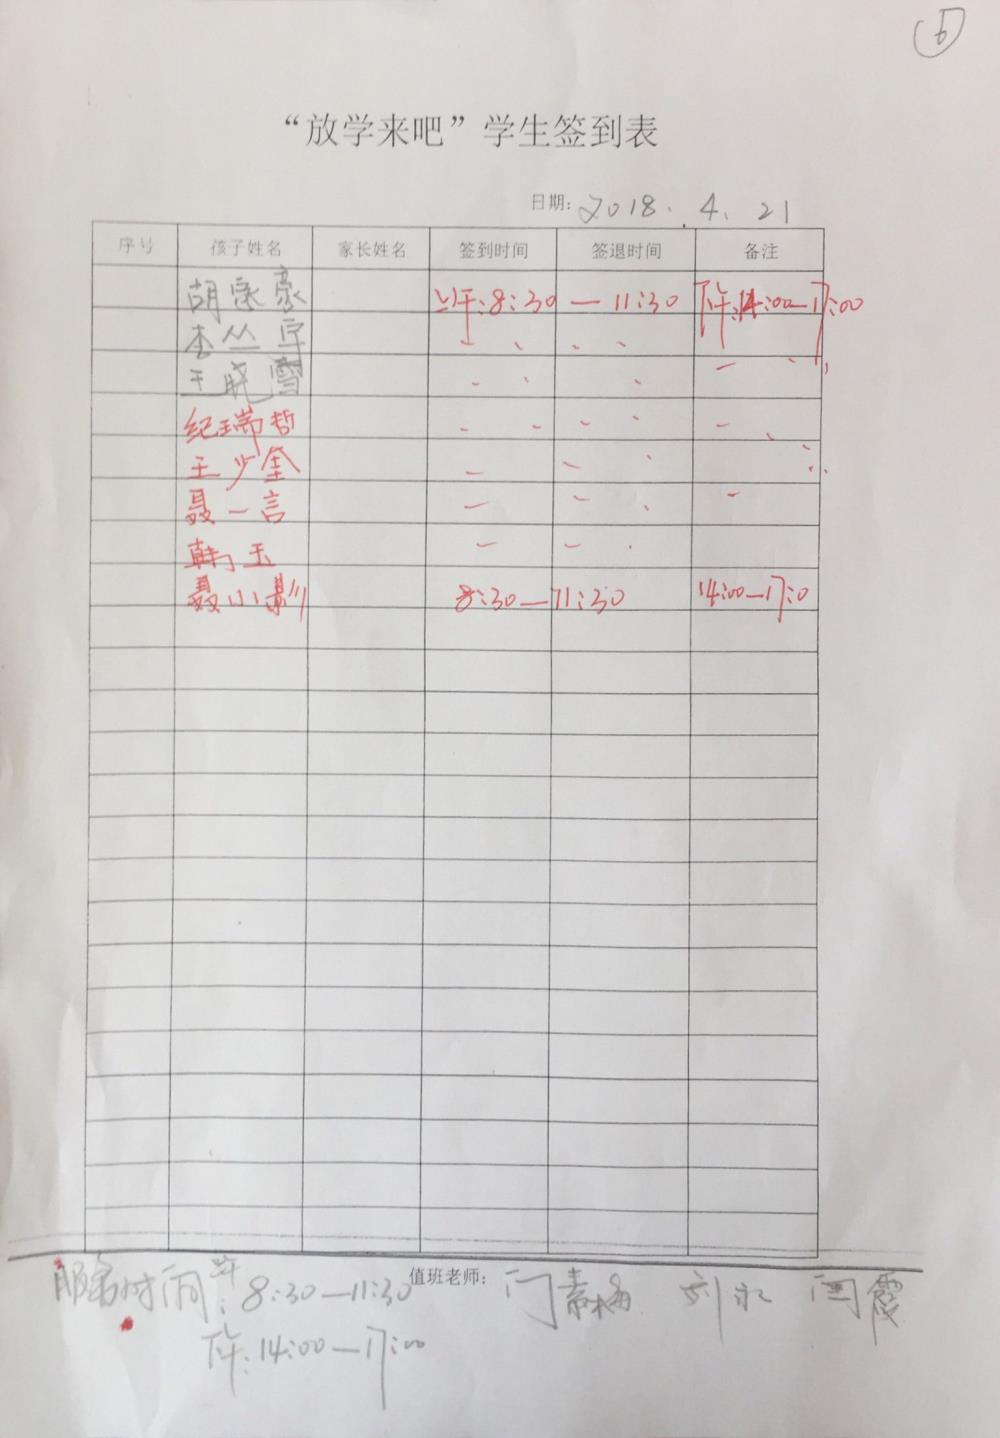 6
“放学来吧”学生签到表
日期: 2018.4.21
序号 孩子姓名 家长姓名 签到时间 签退时间 备注
胡家豪 上午:8:30 — 11:30 下午:14:00—17:00
李丛宇
王晓雪
纪瑞哲
王少奎
聂一言
韩玉
聂小影 8:30—11:30 14:00—17:0
值班老师: 门素梅 刘永 闫霞
服务时间: 上午 8:30—11:30
下午:14:00—17:00